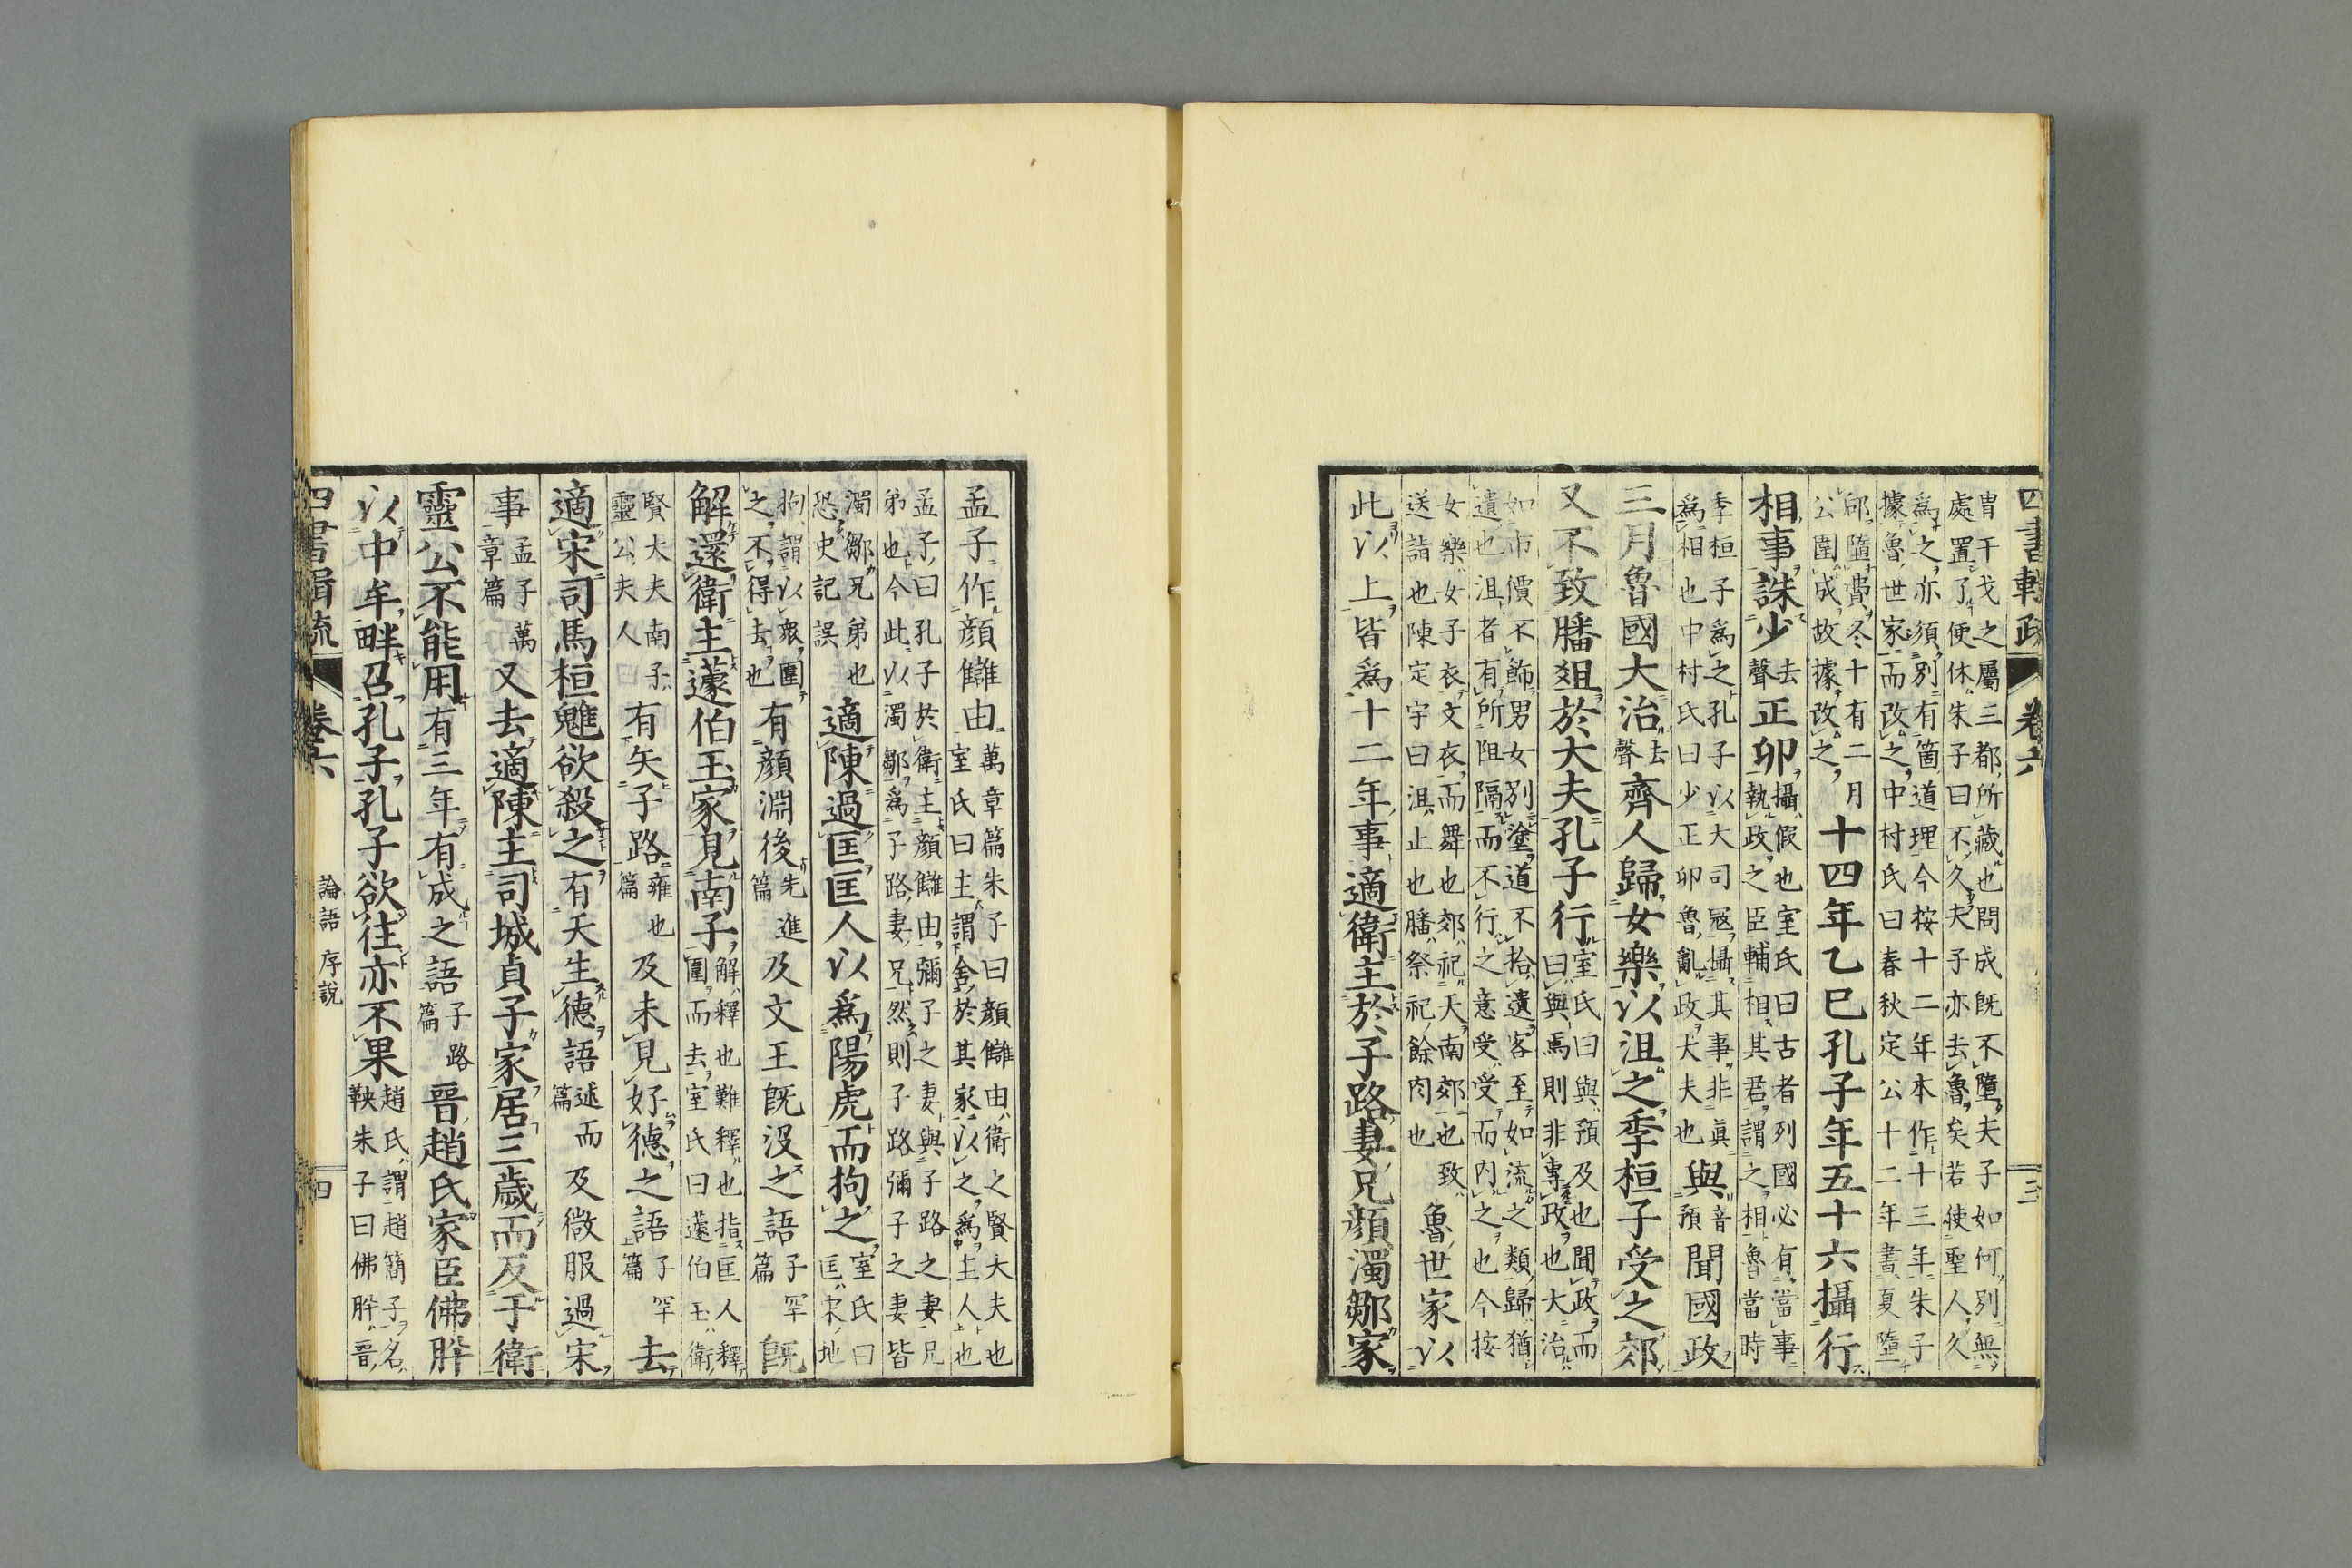 四書輯疏 卷六 三
冑干戈之屬三都所藏也問成既不墮夫子如何別無
處置了便休朱子曰不久夫子亦去魯矣若使聖人久
爲之亦須別有箇道理今按十二年本作十三年朱子
據魯世家而改之中村氏曰春秋定公十二年書夏墮
郈墮費冬十有二月
公圍成故據改之
十四年乙巳孔子年五十六攝行
相事誅少去聲正卯
攝假也室氏曰古者列國必有當事
執政之臣輔相其君謂之相魯當時
季桓子爲之孔子以大司寇攝其事非眞
爲相也中村氏曰少正卯魯亂政大夫也
與音預聞國政
三月魯國大治去聲齊人歸女樂以沮之季桓子受之郊
又不致膰俎於大夫孔子行
室氏曰與預及也聞政而
曰與焉則非專政也大治
如市價不飾男女別塗道不拾遺客至如流之類歸猶
遺也沮者有所阻隔而不行之意受受而内之也今按
女樂女子衣文衣而舞也郊祀天南郊也致
送詣也陳定宇曰沮止也膰祭祀餘肉也
魯世家以
此以上皆爲十二年事適衛主於子路妻兄顏濁鄒家
孟子作顏讎由
萬章篇朱子曰顏讎由衛之賢大夫也
室氏曰主謂舍於其家以之爲主人也
孟子曰孔子於衛主顏讎由彌子之妻與子路之妻兄
弟也今此以濁鄒爲子路妻兄然則子路彌子之妻皆
濁鄒兄弟也
恐史記誤
適陳過匡匡人以爲陽虎而拘之
室氏曰
匡宋地
拘謂以衆圍
之不得去也
有顏淵後先進篇及文王既沒之語子罕篇既
解還衛主蘧伯玉家見南子
解釋也難釋也指匡人釋
圍而去室氏曰蘧伯玉衛
賢大夫南子
靈公夫人曰
有矢子路雍也篇及未見好德之語子罕上篇去
適宋司馬桓魋欲殺之有天生德語述而篇及微服過宋
事孟子萬章篇又去適陳主司城貞子家居三歲而反于衛
靈公不能用有三年有成之語子路篇晉趙氏家臣佛肸
以中牟畔召孔子孔子欲往亦不果
趙氏謂趙簡子名
鞅朱子曰佛肸晉
四書輯疏 卷六 論語 序説 四